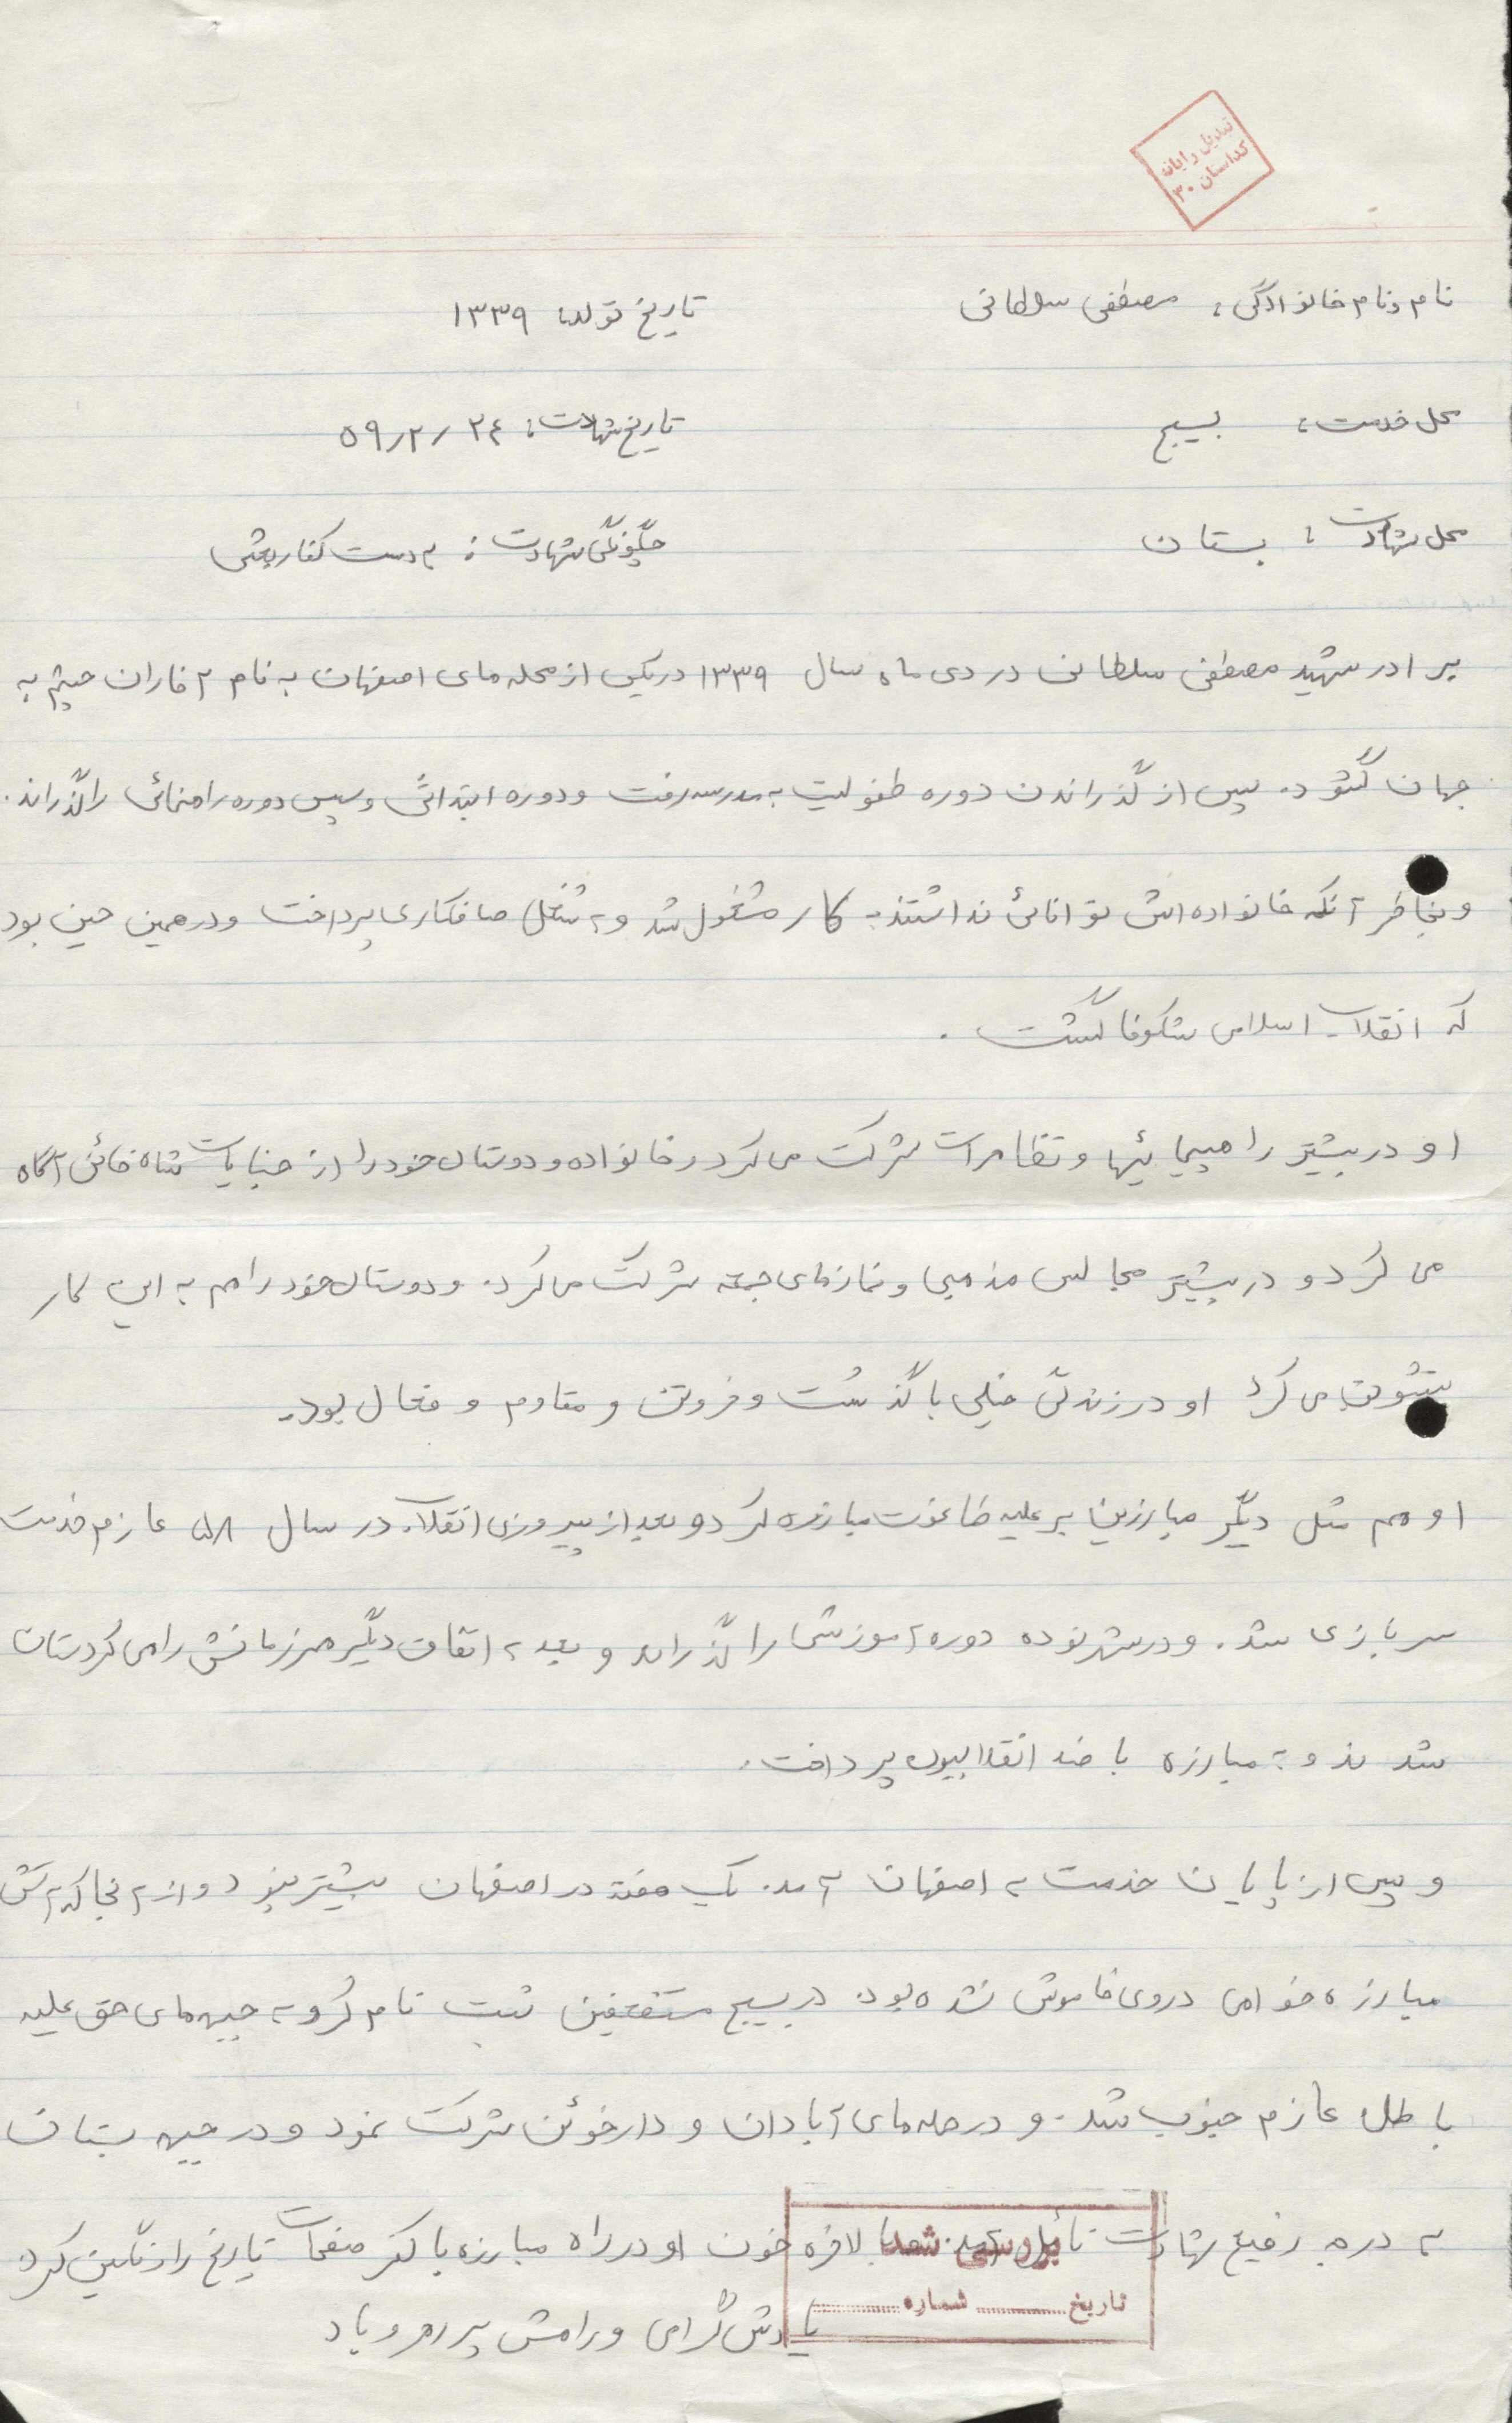 تبدیل رایانه
کداستان ۳۰
نام و نام خانوادگی: مصطفی سلطانی تاریخ تولد: ۱۳۳۹
محل خدمت: بسیج تاریخ شهادت: ۲۴ / ۲ / ۵۹
محل شهادت: بستان چگونگی شهادت: بدست کفار بعثی
برادر شهید مصطفی سلطانی در دی ماه سال ۱۳۳۹ در یکی از محله های اصفهان به نام چشم به
جهان گشود. پس از گذراندن دوره طفولیت به مدرسه رفت و دوره ابتدائی و سپس دوره راهنمائی را گذراند.
و بخاطر آنکه خانواده اش توانائی نداشتند به کار مشغول شد و به شغل صافکاری پرداخت و در همین حین بود
که انقلاب اسلامی شکوفا گشت.
او در بیشتر راهپیمائیها و تظاهرات شرکت می کرد و خانواده و دوستان خود را از جنایات شاه خائن آگاه
می کرد و در بیشتر مجالس مذهبی و نمازهای جمعه شرکت می کرد. و دوستان خود را هم به این کار
تشویق می کرد او در زندگی خیلی با گذشت و فروتن و مقاوم و فعال بود.
او هم مثل دیگر مبارزین بر علیه طاغوت مبارزه کرد و بعد از پیروزی انقلاب در سال ۵۸ عازم خدمت
سربازی شد. و در شهر دوره آموزشی را گذراند و بعد به اتفاق دیگر همرزمانش راهی کردستان
شدند و به مبارزه با ضد انقلابیون پرداخت.
و پس از پایان خدمت به اصفهان آمد. یک هفته در اصفهان بیشتر نبود و از آنجا که آتش
مبارزه خواهی در وی خاموش نشده بود. در بسیج مستضعفین ثبت نام کرد و به جبهه های حق علیه
باطل عازم جنوب شد. و در حمله های آبادان و دارخوئن شرکت نمود و در جبهه بستان
به درجه رفیع شهادت نائل آمد. بالاخره خون او در راه مبارزه با کفر صفحات تاریخ را رنگین کرد.
بررسی شد
تاریخ شماره
یادش گرامی و راهش پر رهرو باد